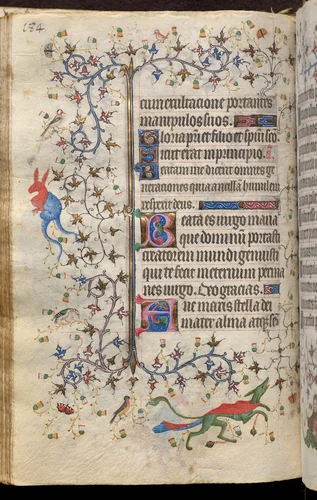 184
cum exultacione portantes
manipulos suos.
Gloria pri et filio et spui sco
Sicut erat in principio. a.
Beatam me dicent omnes ge
neraciones quia ancillam humilem
respexit deus.
Beata es virgo maria
que dominum portasti
creatorem mundi genuisti
qui te fecit in eternum perma
nes virgo. Deo gracias.
Ave maris stella dei
mater alma atque se